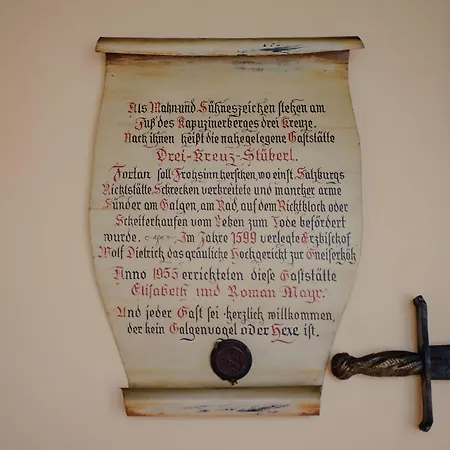 Als Mahnund Sühneszeichen stehen am
Fuß des Kapuzinerberges drei Kreuze.
Nach ihnen heißt die nahegelegene Gaststätte
Drei-Kreuz-Stüberl.
Fortan soll Frohsinn herschen, wo einst Salzburgs
Richtstätte Schrecken verbreitete und mancher arme
Sünder am Galgen, am Rad, auf dem Richtblock oder
Scheiterhaufen vom Leben zum Tode befördert
wurde. Im Jahre 1599 verlegte Erzbischof
Wolf Dietrich das gräuliche Hochgericht zur Gneiserhöh
Anno 1955 errichteten diese Gaststätte
Elisabeth und Roman Mayr.
Und jeder Gast sei herzlich willkommen,
der kein Galgenvogel oder Hexe ist.